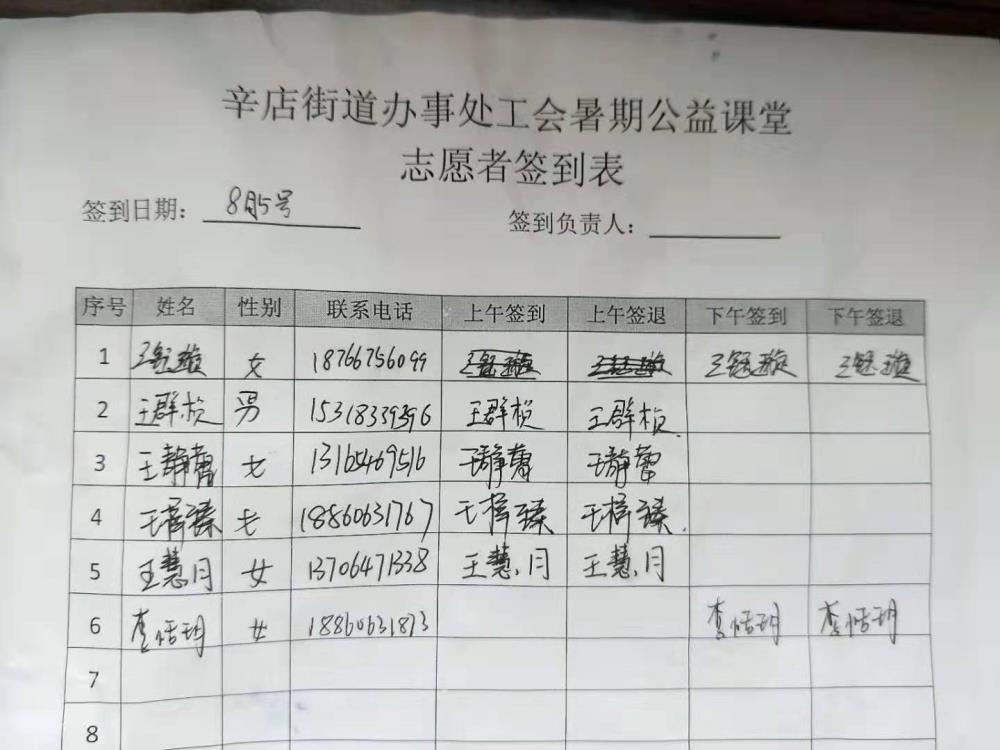 辛店街道办事处工会暑期公益课堂
志愿者签到表
签到日期： 8月5号 签到负责人：
序号 姓名 性别 联系电话 上午签到 上午签退 下午签到 下午签退
1 王钰璇 女 18766756099 王钰璇 王钰璇 王钰璇 王钰璇
2 王群桢 男 15318339396 王群桢 王群桢
3 王静蕾 女 13165469516 王静蕾 王静蕾
4 王梓臻 女 18860631767 王梓臻 王梓臻
5 王慧月 女 13706471338 王慧月 王慧月
6 李恬玥 女 18860631873 李恬玥 李恬玥
7
8